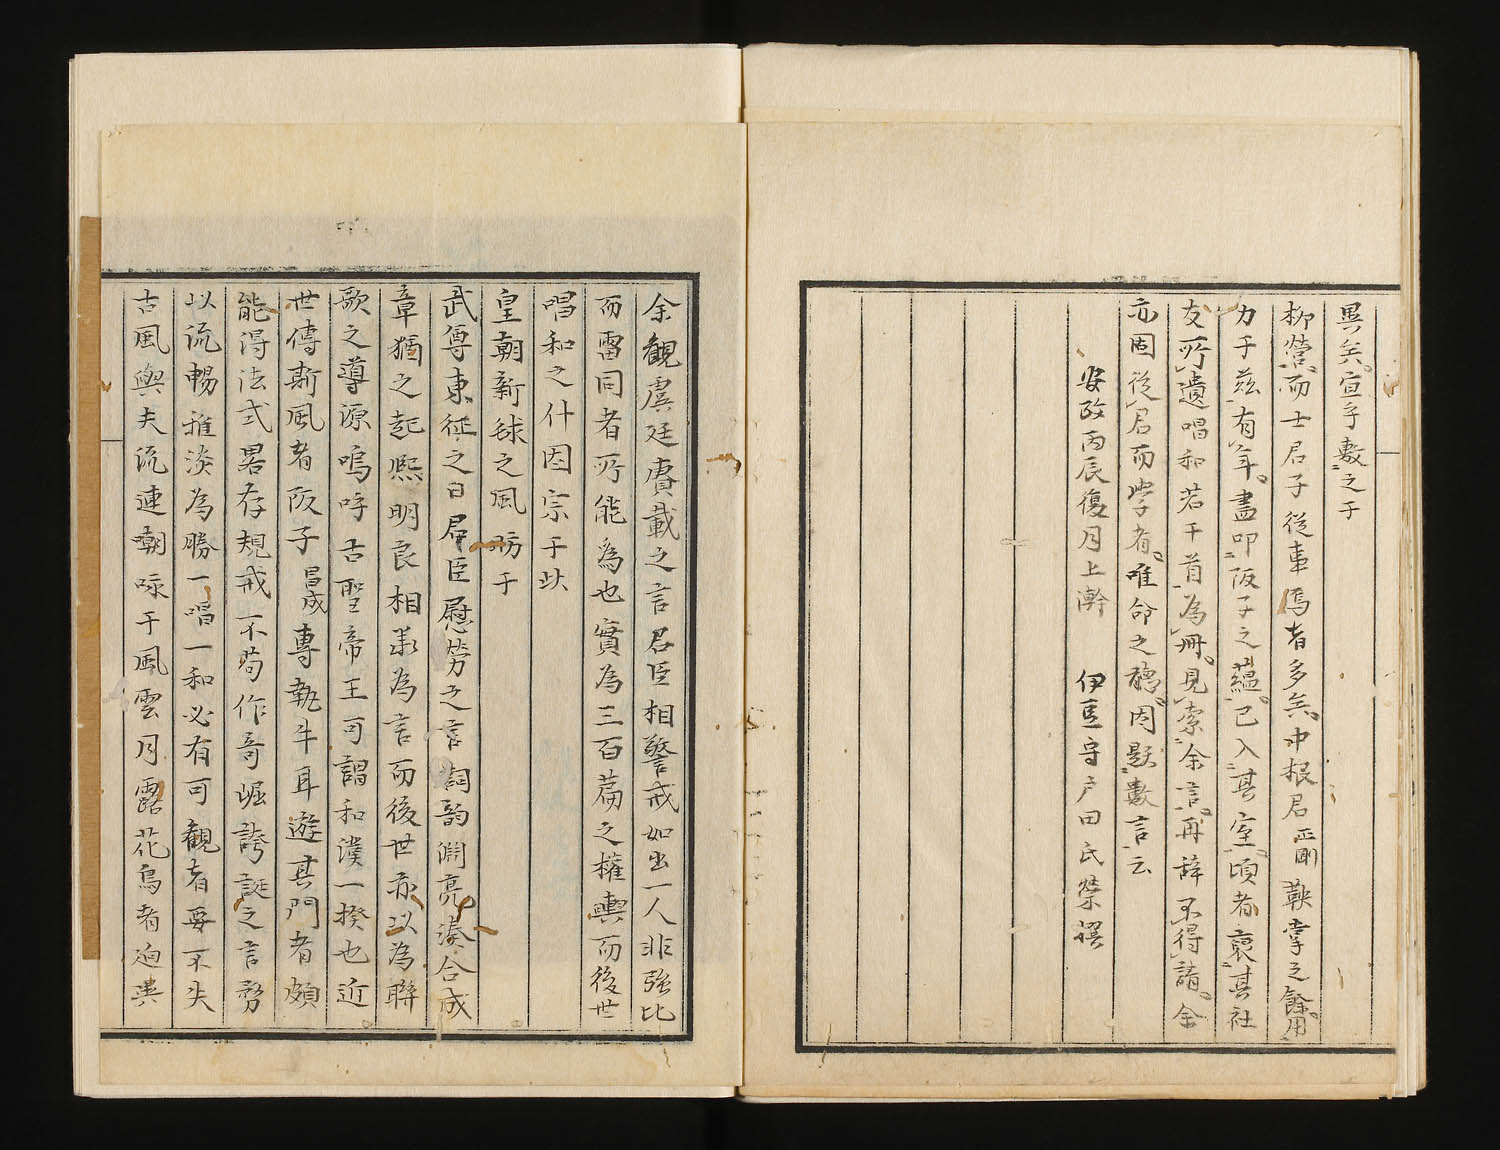 異矣宣乎數之于
柳營而士君子從事焉者多矣中根君正剛鞅掌之餘用
力于茲有年盡叩阪子之蘊已入其室頃者裒其社
友所遺唱和若干首為冊見索余言再辞不得請余
亦固從君而学者唯命之聽因題數言云
安政丙辰復月上澣　伊豆守戸田氏榮撰
余觀虞廷賡載之言君臣相警戒如出一人非強比
而雷同者所能為也實為三百篇之權輿而後世
唱和之什因宗于此
皇朝新毬之風昉于
武尊東征之日君臣慰労之言詞韵淵亮湊合成
章猶之起熈明良相承為言而後世亦以為聯
歌之導源嗚呼古聖帝王可謂和漢一揆也近
世傳斯風者阪子昌成專執牛耳遊其門者頗
能得法式畧存規戒不苟作奇崛誇誕之言務
以流暢雅淡為勝一唱一和必有可觀者要不失
古風與夫流連嘲咏于風雲月露花鳥者迥異